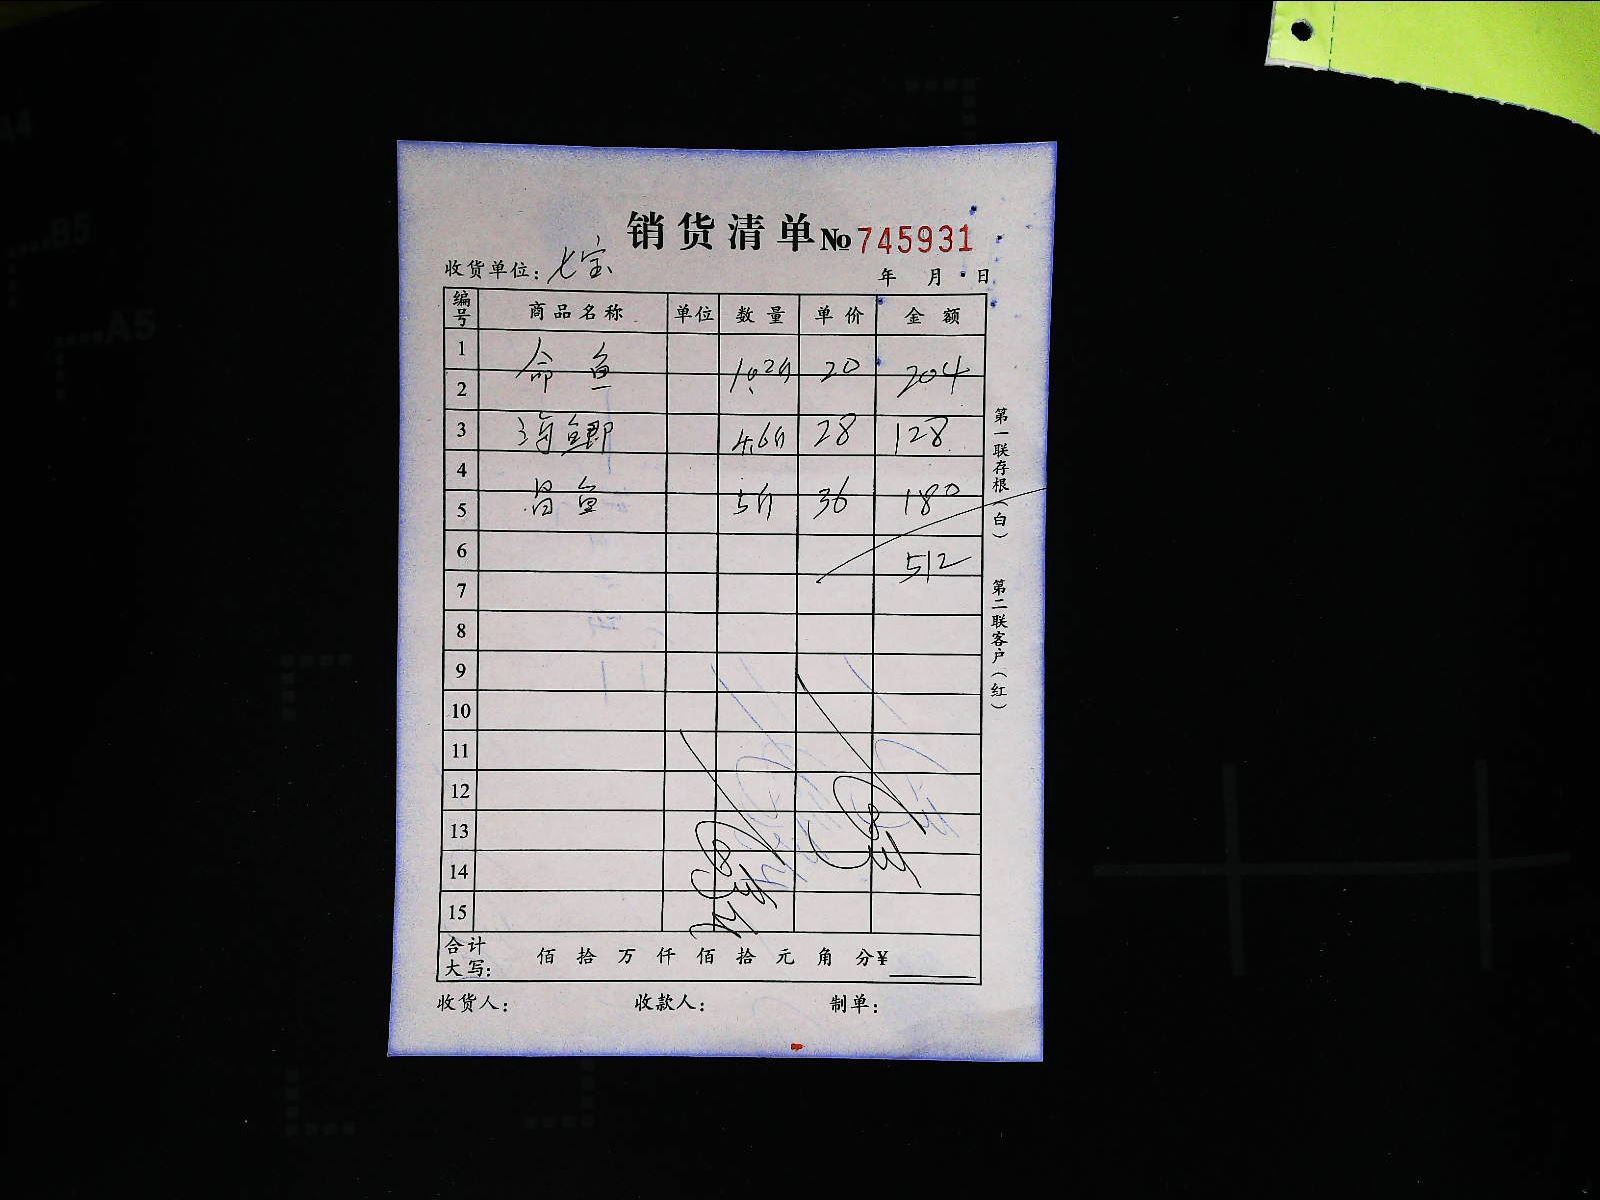 销货清单 №745931
收货单位: 七宝 年 月 日
编号 商品名称 单位 数量 单价 金额
1 命鱼 10.2斤 20 204
2
3 海鲫 4.6斤 28 128
4
5 昌鱼 5斤 36 180
6 512
7
8
9
10
11
12
13
14
15
合计大写: 佰 拾 万 仟 佰 拾 元 角 分 ¥
收货人: 收款人: 制单:
第一联存根(白)
第二联客户(红)
A4
B5
A5